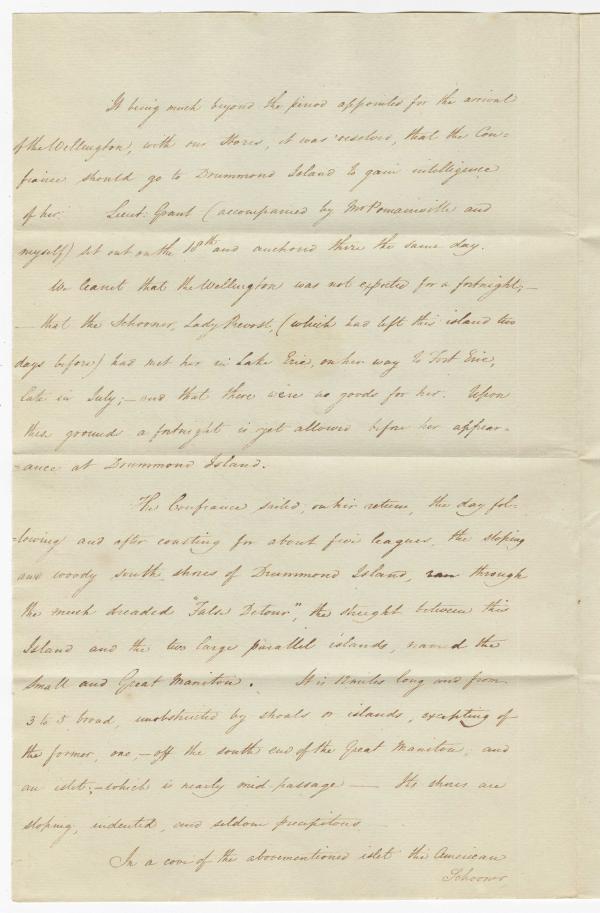 It being much beyond the period appointed for the arrival
of the Wellington, with our Stores, it was resolved, that the Con=
fiance should go to Drummond Island to gain intelligence
of her. Lieut: Grant (accompanied by Mr Pomainville and
myself) set out on the 18th and anchored there the same day.
We learnt that the Wellington was not expected for a fortnight; —
— that the Schooner, Lady Prevost, (which had left this island two
days before) had met her in Lake Erie, on her way to Fort Erie,
late in July; — and that there were no goods for her. Upon
this ground a fortnight is yet allowed before her appear=
=ance at Drummond Island.
The Confiance sailed, on her return, the day fol=
=lowing and after coasting for about five leagues, the sloping
and woody south shores of Drummond Island, ran through
the much dreaded "False Detour", the streight between this
Island and the two large parallel islands, named the
Small and Great Manitou. It is 12 miles long and from
3 to 5 broad, unobstructed by shoals or islands, excepting of
the former, one, — off the south end of the Great Manitou; and
an islet; — which is nearly mid-passage — Its shores are
sloping, indented, and seldom precipitous.
In a cove of the abovementioned islet the American
Schooner